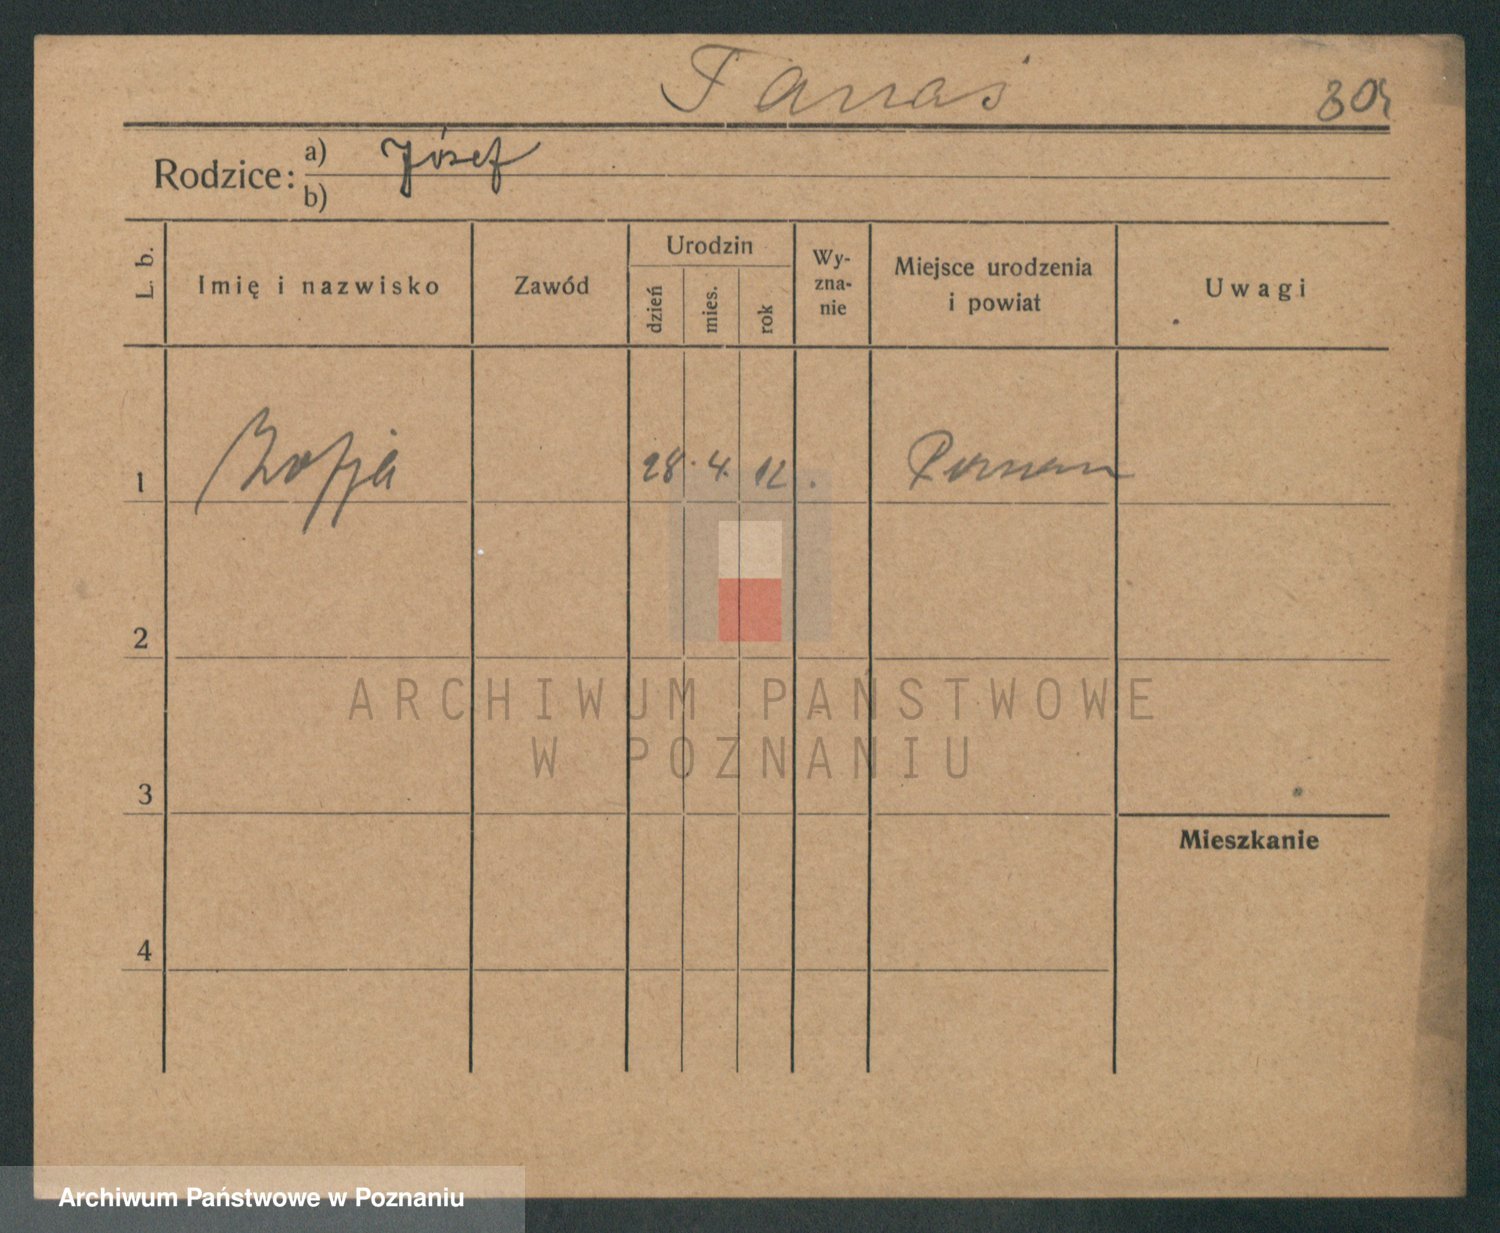 Tanaś
Rodzice: a) Józef
b)
L. b.
Imię i nazwisko
Zawód
Urodzin
dzień
mies.
rok
Wy-
zna-
nie
Miejsce urodzenia
i powiat
Uwagi
1 Zofja 28. 4. 12. Poznań
2
3
4
Mieszkanie
ARCHIWUM PAŃSTWOWE
W POZNANIU
Archiwum Państwowe w Poznaniu